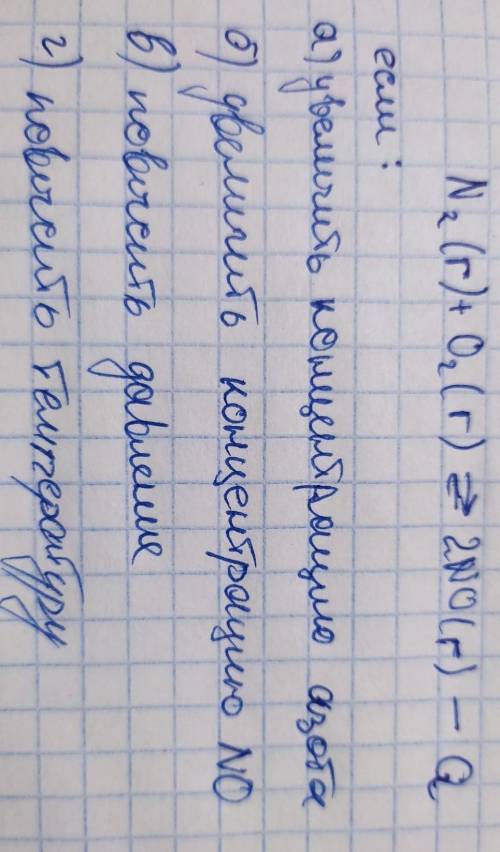 N₂(г) + O₂(г) ⇄ 2NO(г) - Q
если:
а) увеличить концентрацию азота
б) увеличить концентрацию NO
в) повысить давление
г) повысить температуру